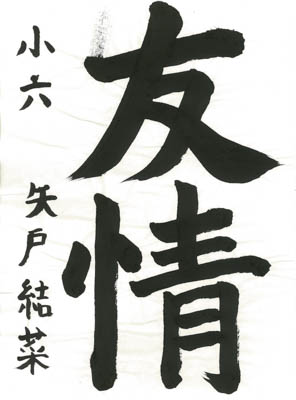 友情
小六 矢戸結菜